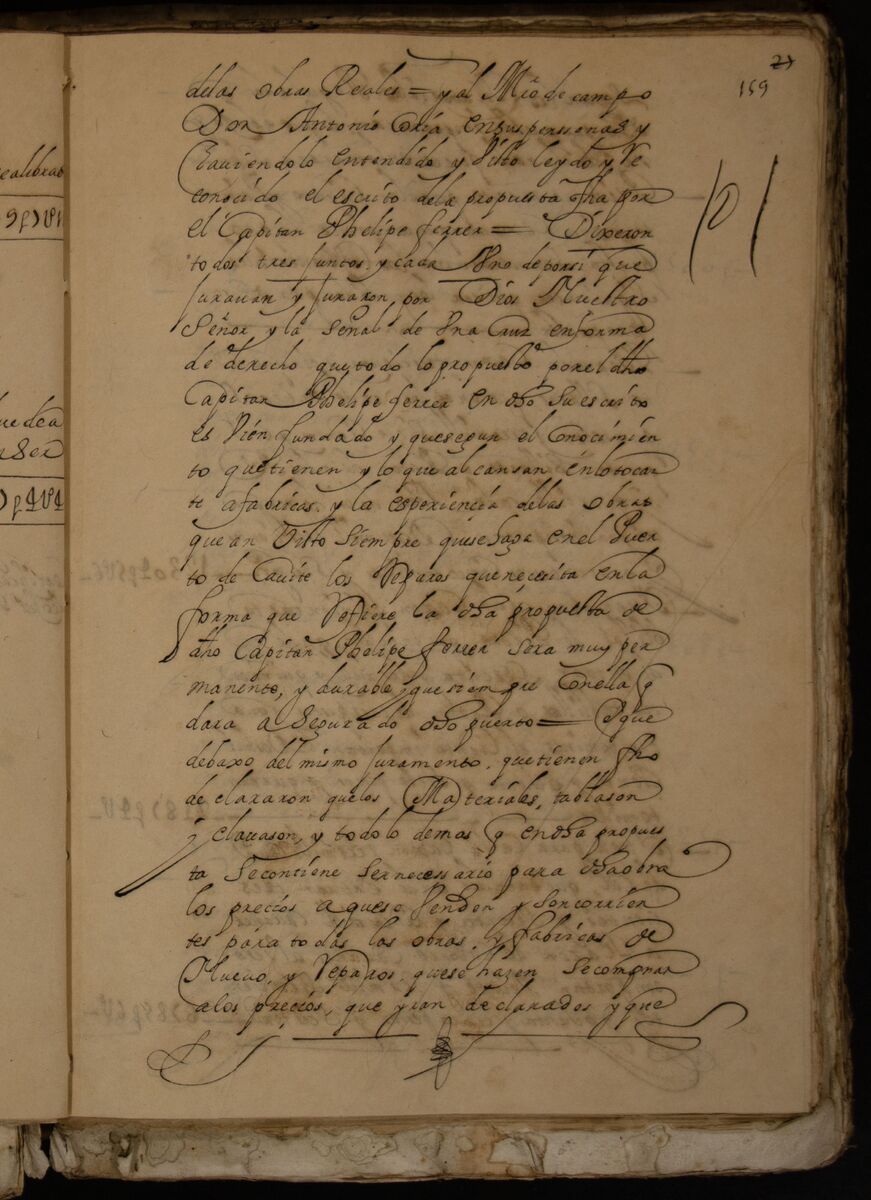 21
159
delas obras Reales = y al Mro de campo
Don Antonio Oria ensus perssonas y
haviendolo entendido y Visto leydo y Re
conocido el escrito dela propuesta fha por
el Capitan Phelipe ferrer = Dixeron
todos tres Juntos y cada Vno deporsi que
Jurauan y Juraron por Dios Nuestro
Señor y la señal de Vna Cruz enforma
de derecho que todo lo propuesto por el dho
Capitan Phelipe ferrer en dho su escrito
es Vien fundado y quesegun el Conocimien
to que tienen y lo que alcansan enlotocan
te afabricas y la esperiencia delas obras
que an Visto siempre quesehaga en el Puer
to de Cauite los Reparos que necesita enla
forma que Refiere la dha propuesta de
dho Capitan Phelipe ferrer sera muy per
manente, y durable, y que siempre Conella q
dara a Segurado dho puerto = Y que
debaxo del mismo Juramento quetienen fho
declararon quelos Materiales, tablason
y clauason, y todo lo demas q en dha propues
ta secontiene ser necessario para dha obra
los precios aquese Venden y son corrien
tes para todas las obras, y fabricas de
Nueuo, y Reparos quese hazen se compran
alos precios, que yuan declarados y que